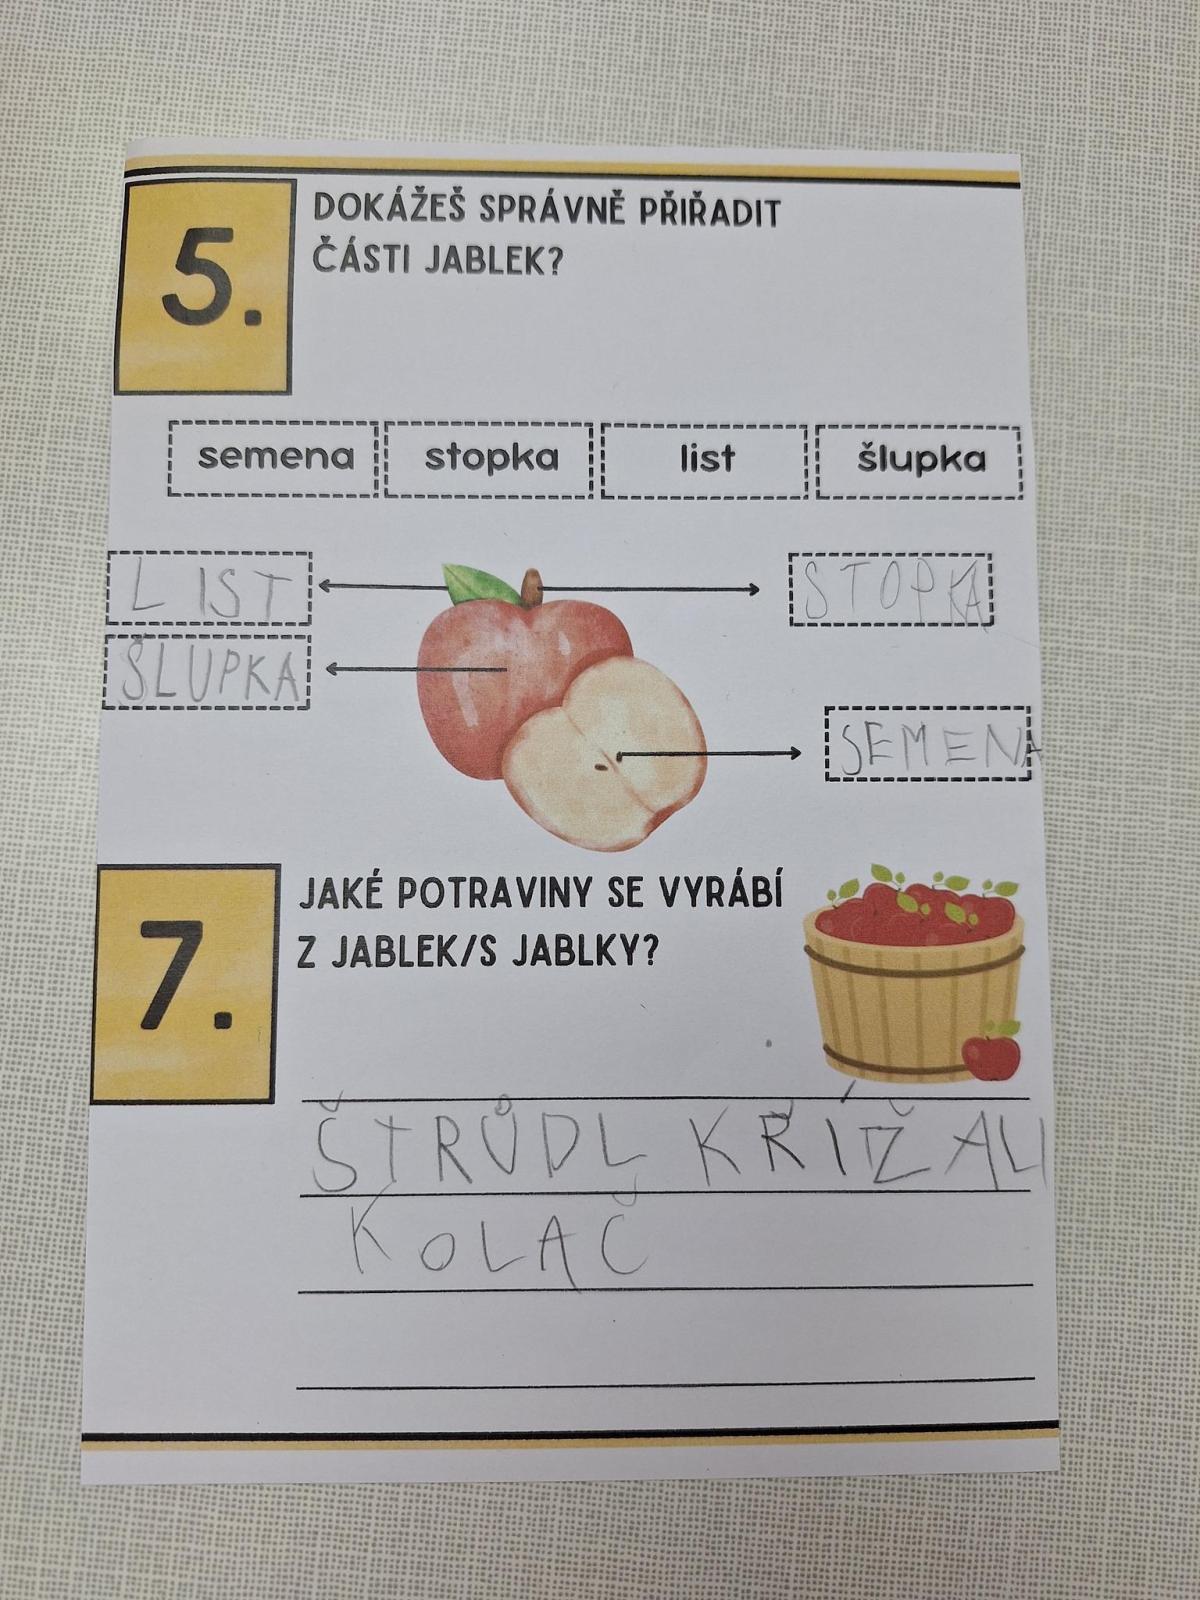 5.
DOKÁŽEŠ SPRÁVNĚ PŘIŘADIT
ČÁSTI JABLEK?
semena stopka list šlupka
LIST STOPKA
ŠLUPKA
SEMENA
7.
JAKÉ POTRAVINY SE VYRÁBÍ
Z JABLEK/S JABLKY?
ŠTRŮDL KŘÍŽALI
KOLAČ